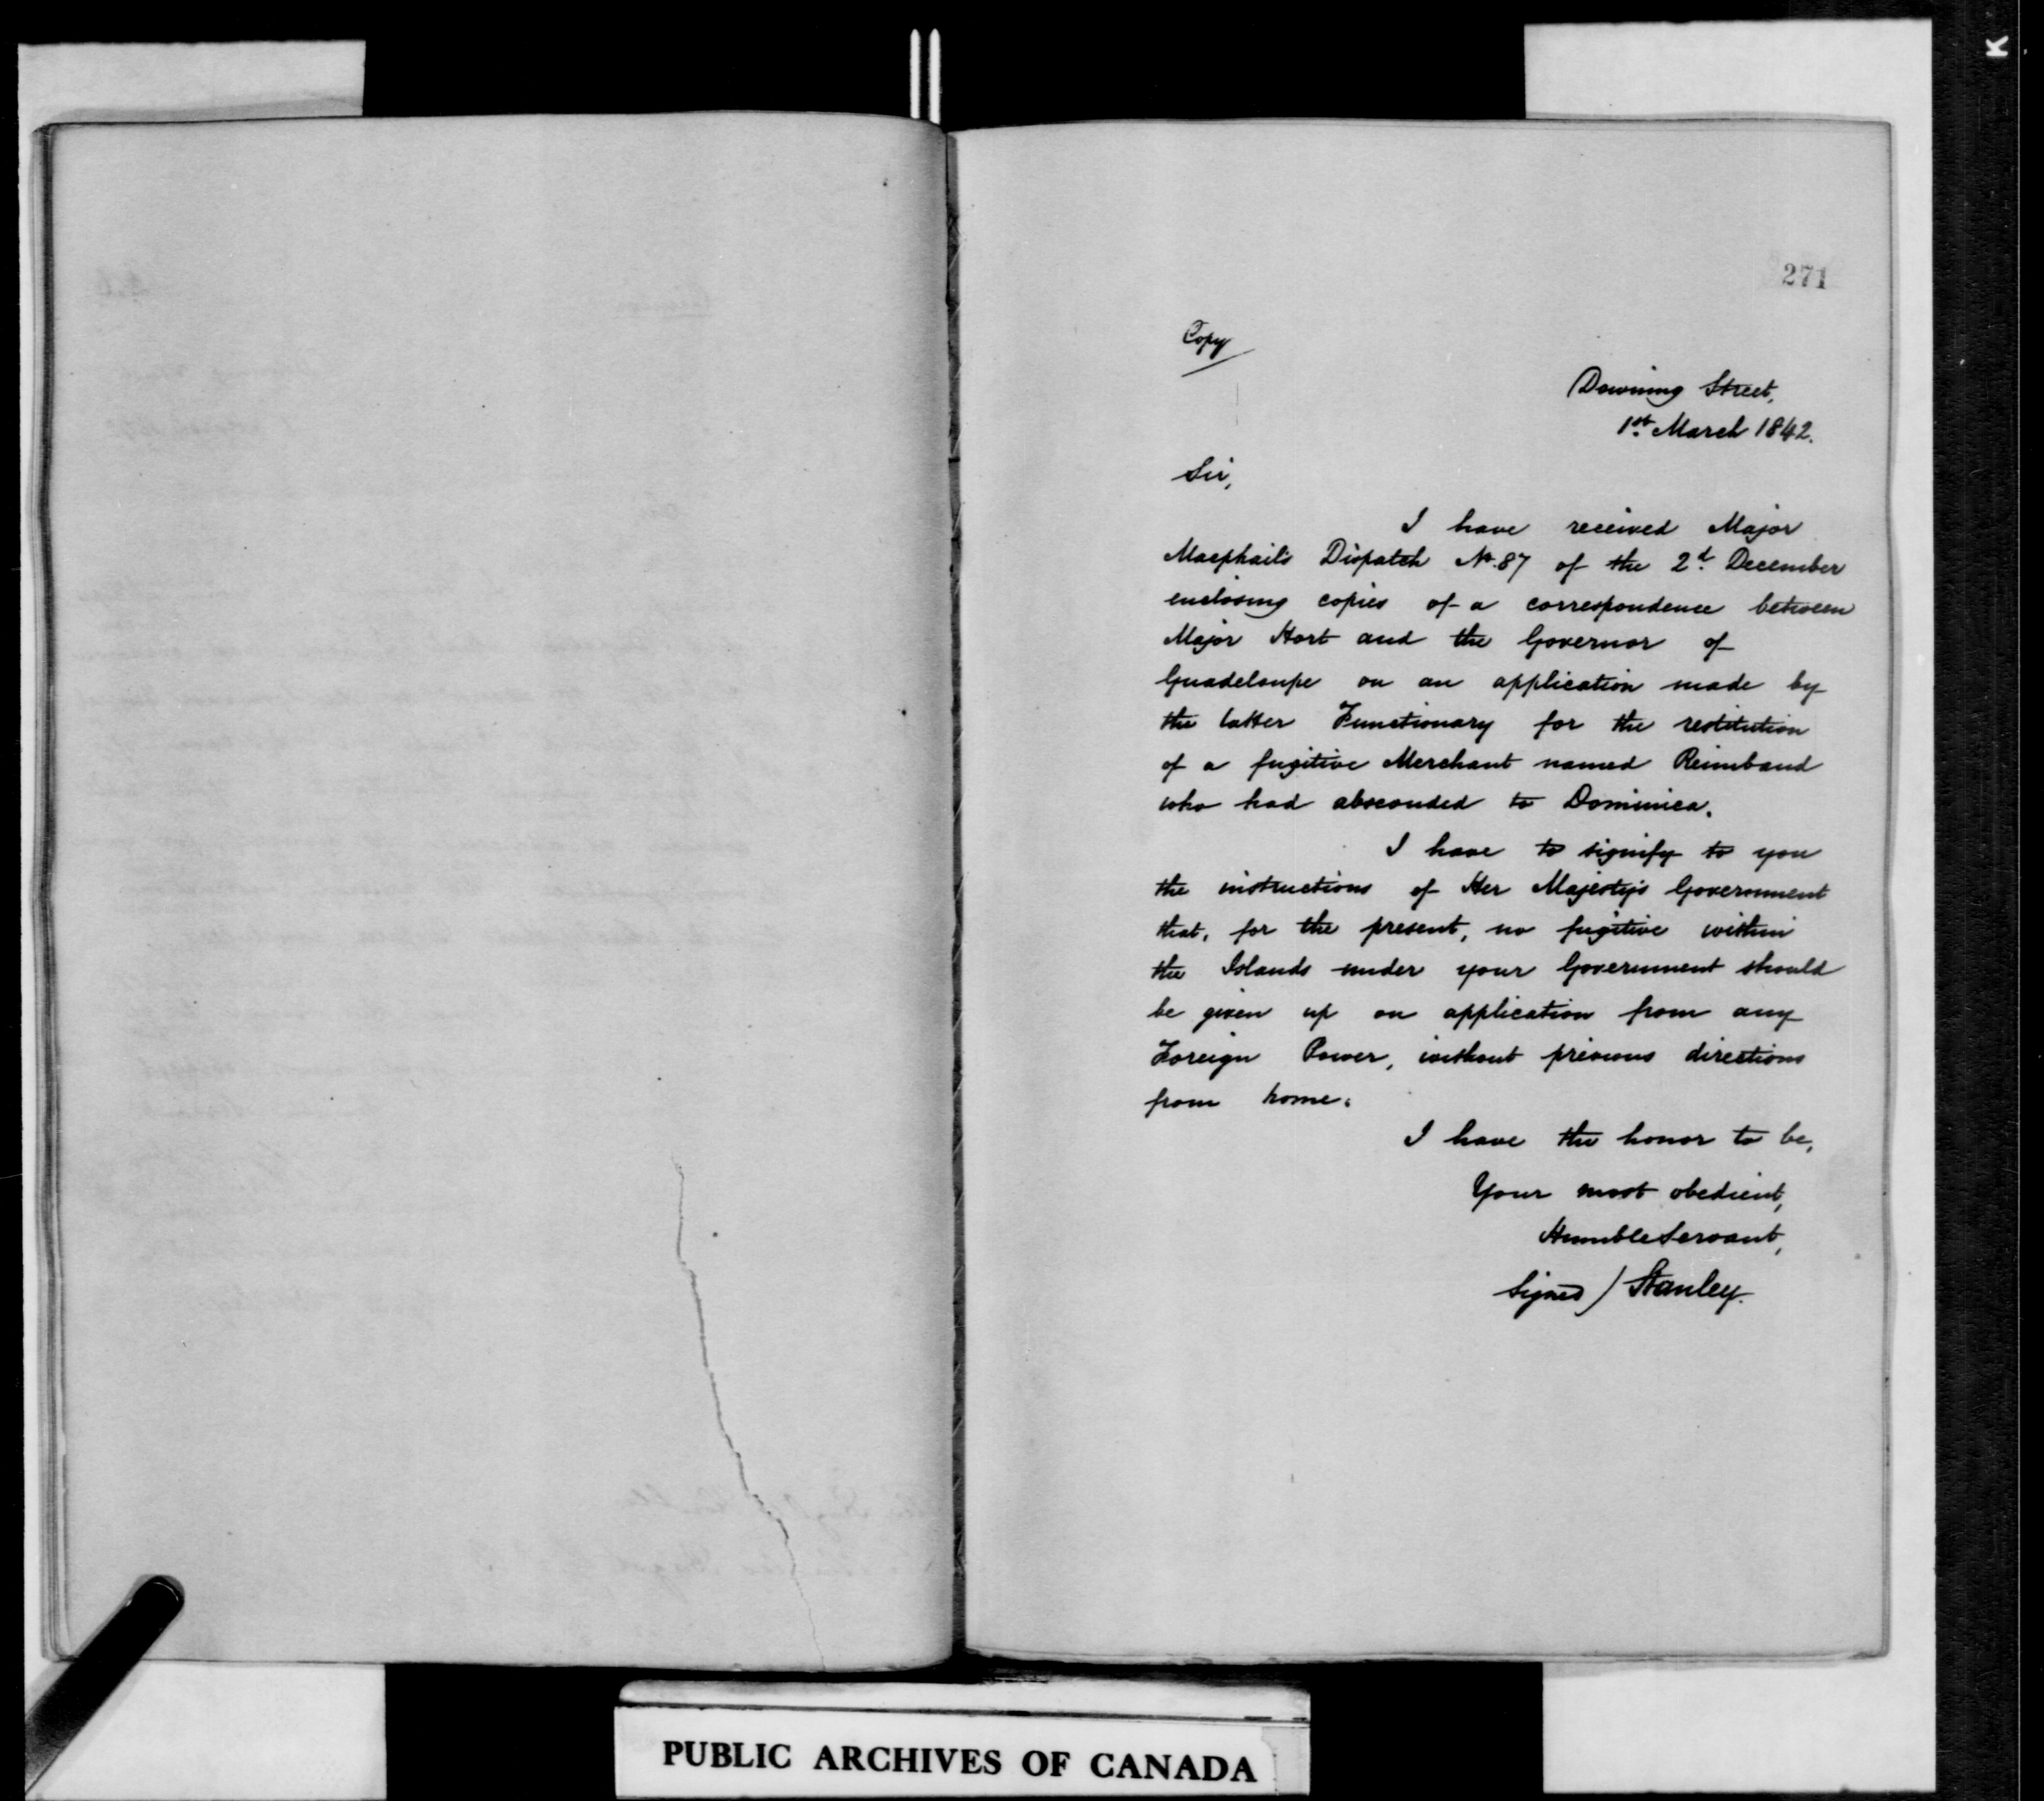 271
Copy
Downing Street,
1st. March 1842.
Sir,
I have received Major
Macphail's Dispatch No. 87 of the 2d. December
enclosing copies of a correspondence between
Major Hort and the Governor of
Guadeloupe on an application made by
the latter Functionary for the restitution
of a fugitive Merchant named Reimbaud
who had absconded to Dominica.
I have to signify to you
the instructions of Her Majesty's Government
that, for the present, no fugitive within
the Islands under your Government should
be given up on application from any
Foreign Power, without previous directions
from home.
I have the honor to be,
Your most obedient,
Humble Servant,
Signed) Stanley.
PUBLIC ARCHIVES OF CANADA
K